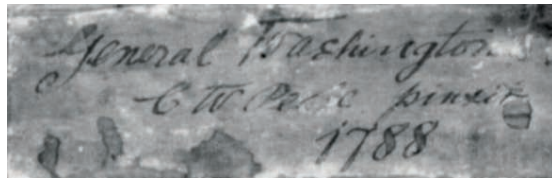 General Washington
C W Peale pinxit
1788